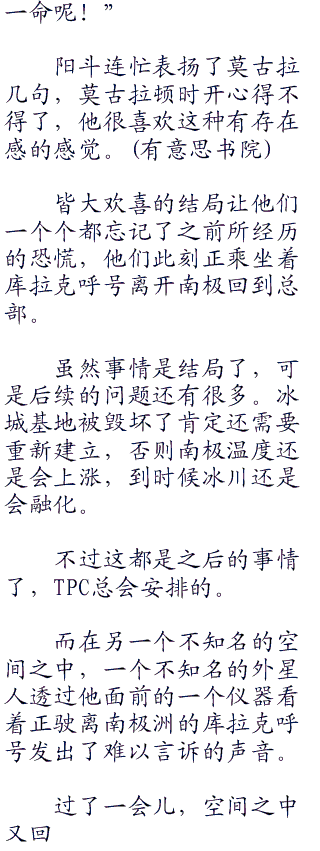 一命呢！”
阳斗连忙表扬了莫古拉
几句，莫古拉顿时开心得不
得了，他很喜欢这种有存在
感的感觉。(有意思书院)
皆大欢喜的结局让他们
一个个都忘记了之前所经历
的恐慌，他们此刻正乘坐着
库拉克呼号离开南极回到总
部。
虽然事情是结局了，可
是后续的问题还有很多。冰
城基地被毁坏了肯定还需要
重新建立，否则南极温度还
是会上涨，到时候冰川还是
会融化。
不过这都是之后的事情
了，TPC总会安排的。
而在另一个不知名的空
间之中，一个不知名的外星
人透过他面前的一个仪器看
着正驶离南极洲的库拉克呼
号发出了难以言诉的声音。
过了一会儿，空间之中
又回